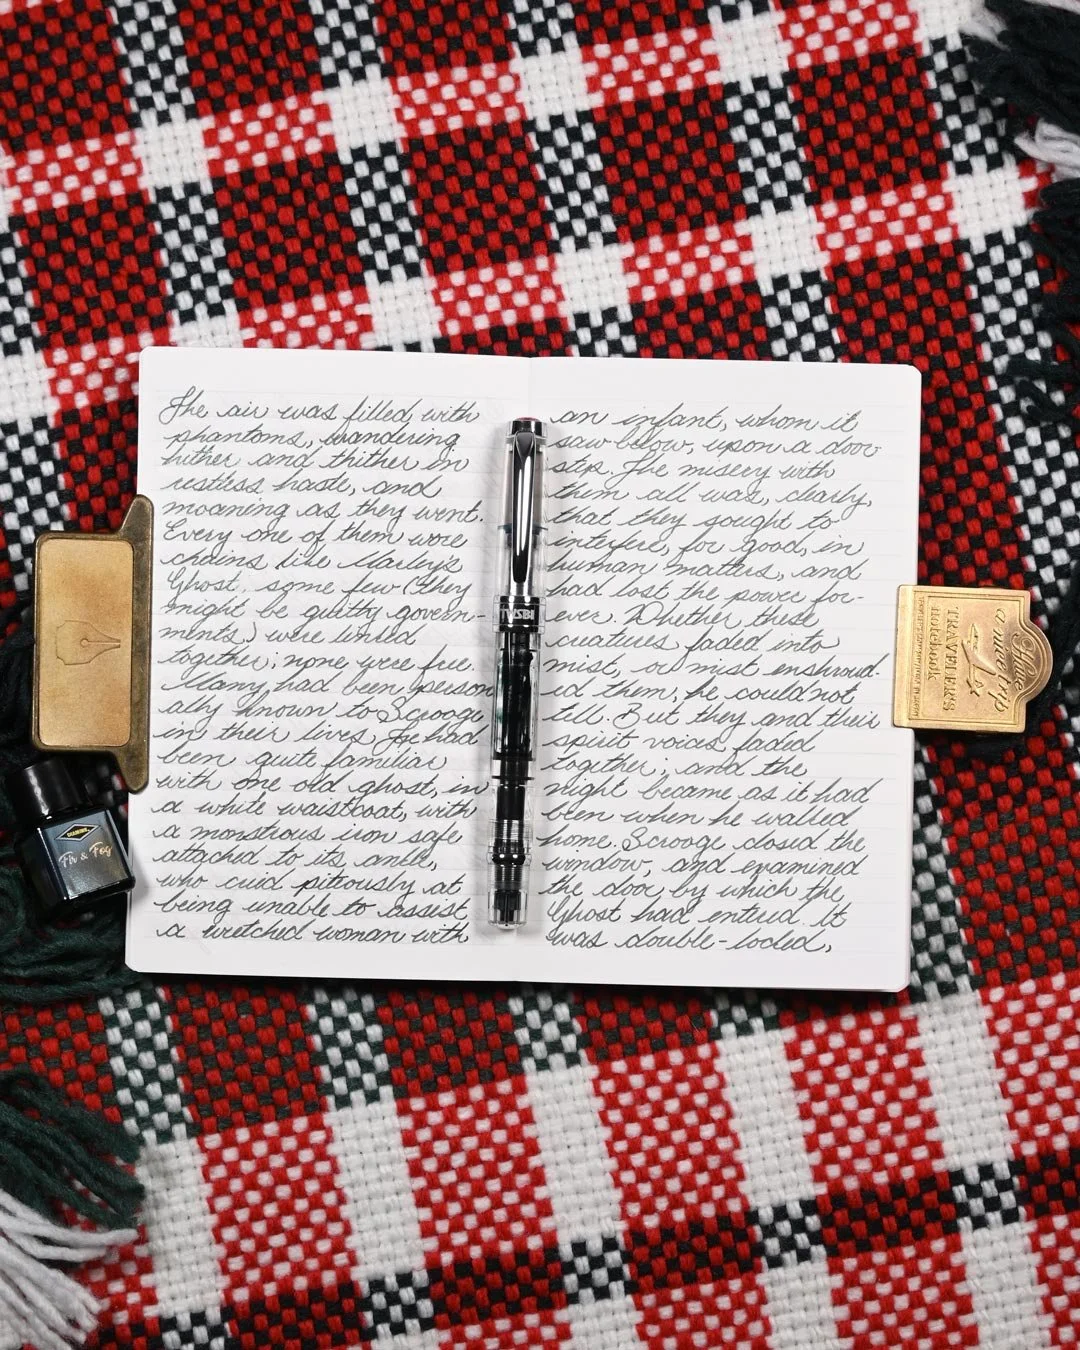 The air was filled with
phantoms, wandering
hither and thither in
restless haste, and
moaning as they went.
Every one of them wore
chains like Marley's
Ghost, some few (they
might be guilty govern-
ments) were linked
together; none were free.
Many had been person
ally known to Scrooge
in their lives, He had
been quite familiar
with one old ghost, in
a white waistcoat, with
a monstrous iron safe
attached to its ankle,
who cried piteously at
being unable to assist
a wretched woman with
an infant, whom it
saw below, upon a door-
step. The misery with
them all was, clearly,
that they sought to
interfere, for good, in
human matters, and
had lost the power for-
ever. Whether these
creatures faded into
mist, or mist enshroud-
ed them, he could not
tell. But they and their
spirit voices faded
together; and the
night became as it had
been when he walked
home. Scrooge closed the
window, and examined
the door by which the
Ghost had entered. It
was double-locked,
TWSBI
DIAMINE
Fir & Fog
Have
a nice trip
TRAVELER'S
notebook